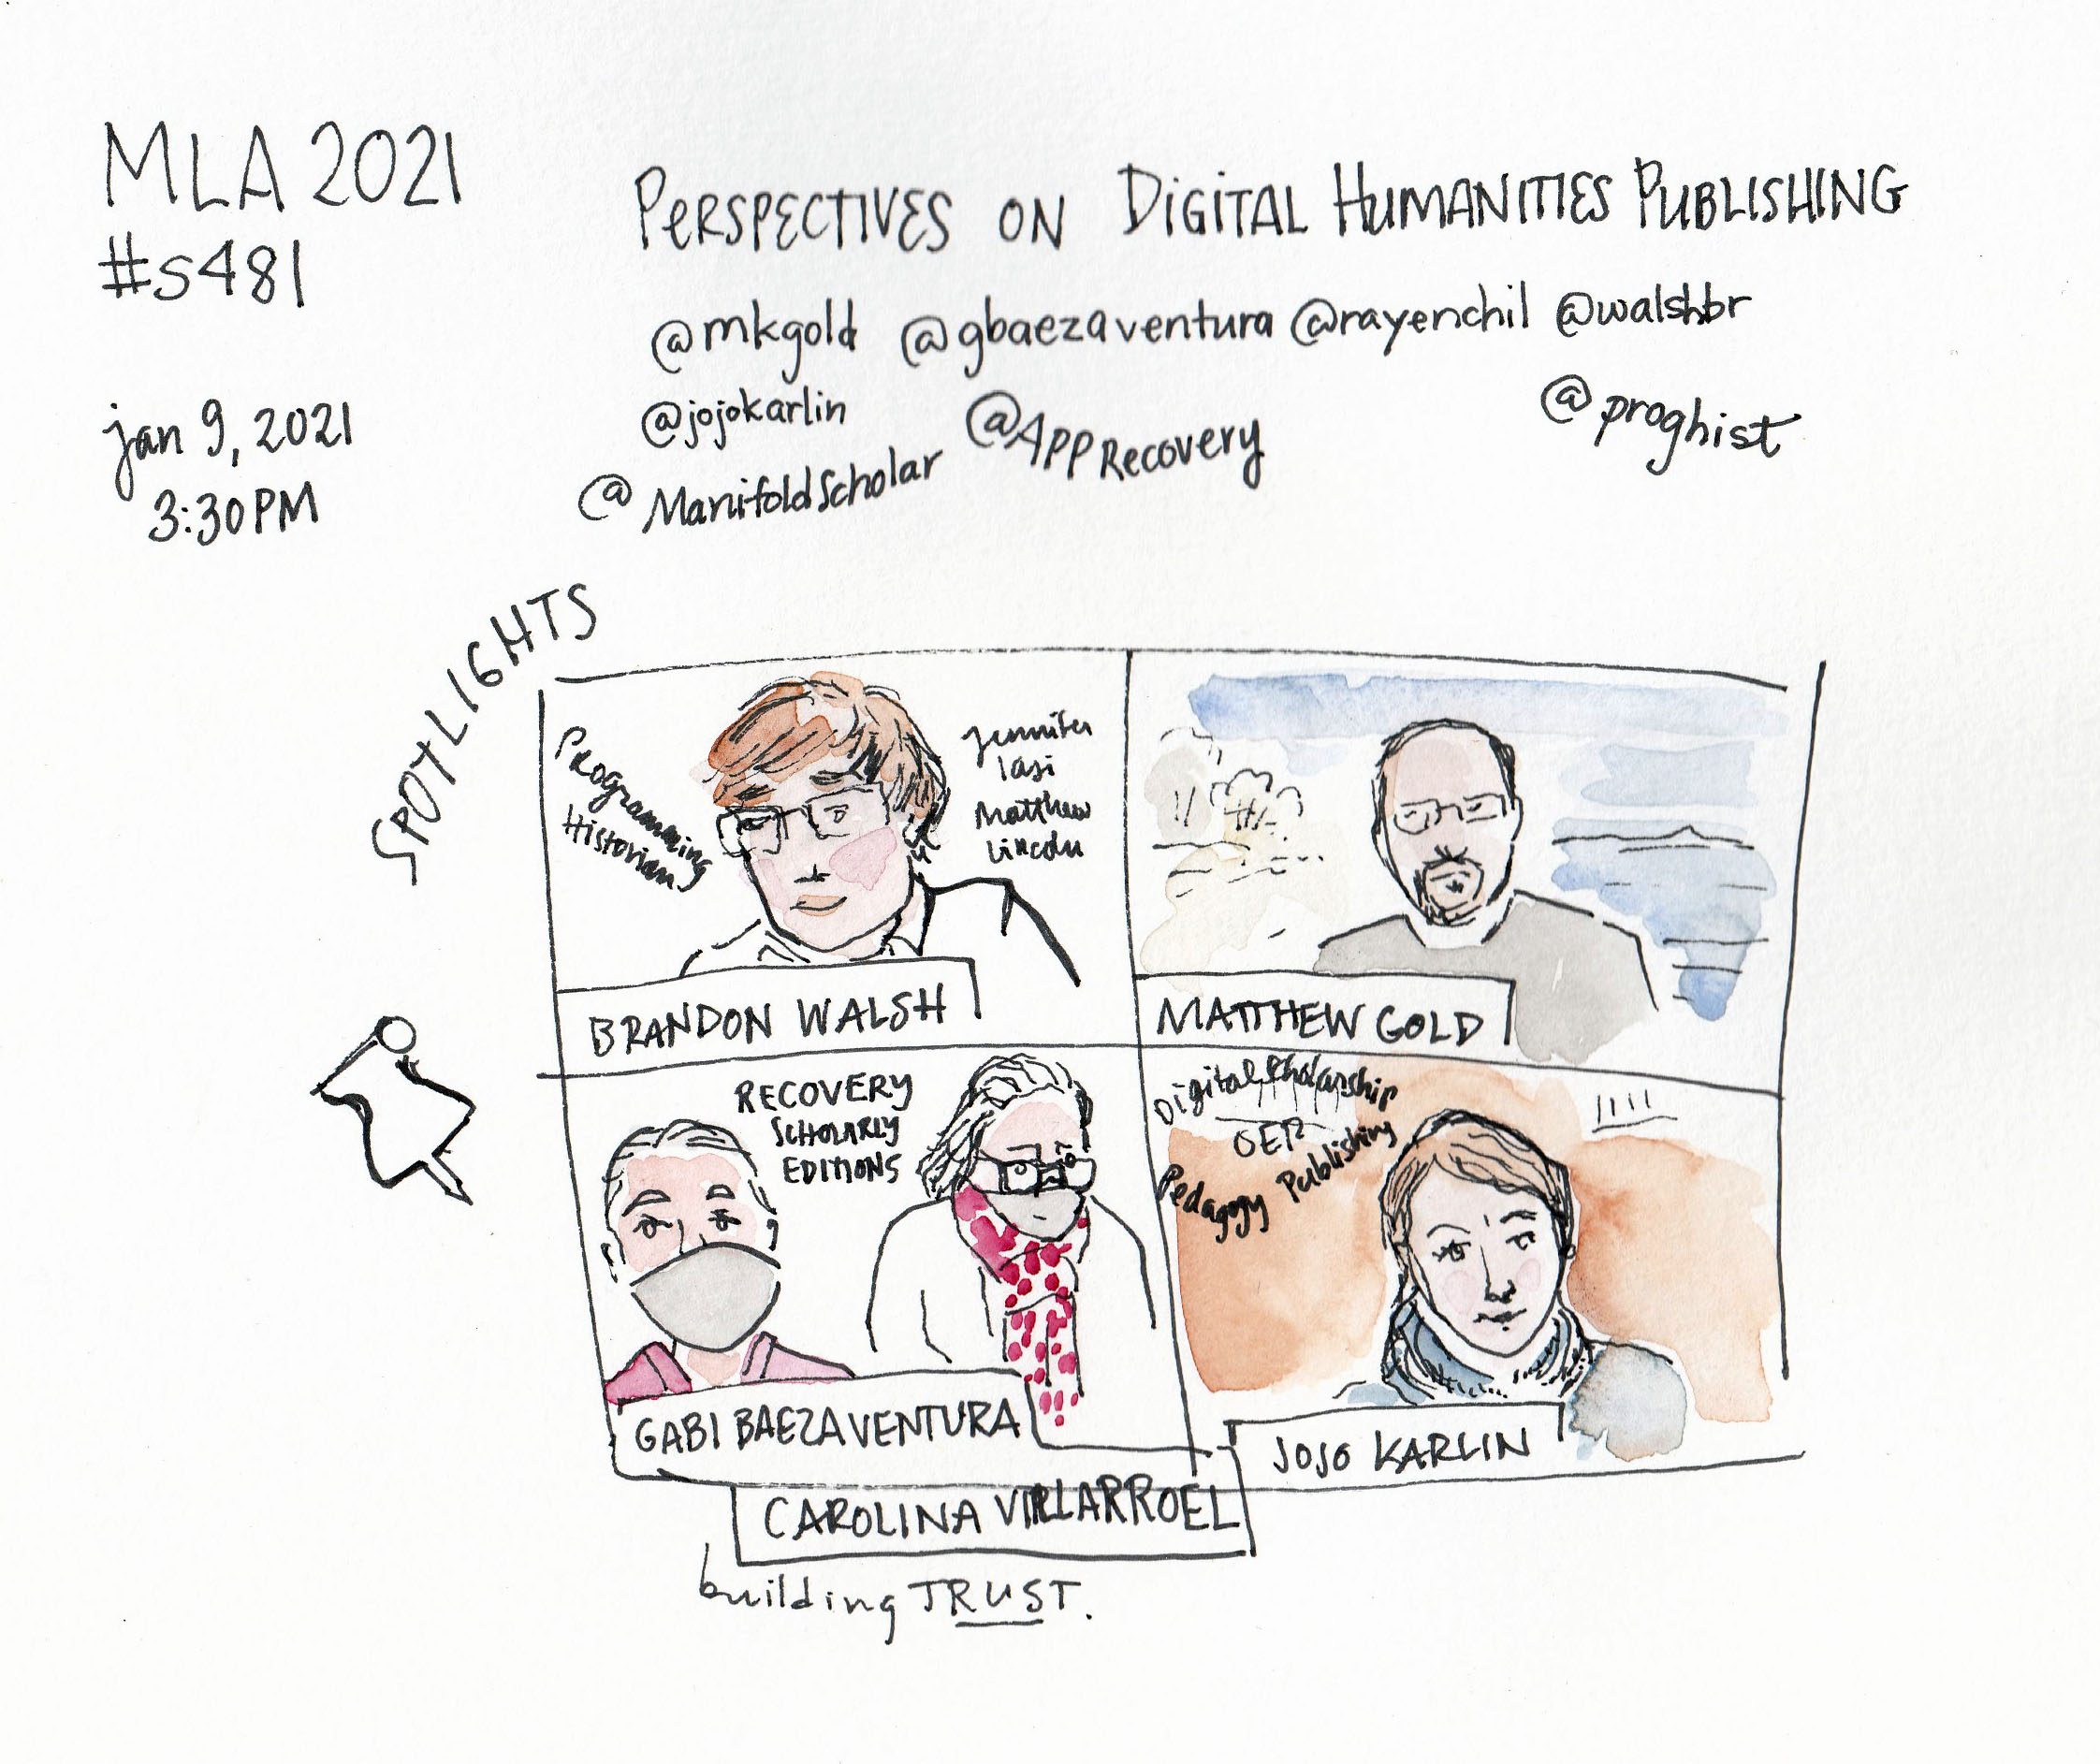 MLA 2021
#s481
jan 9, 2021
3:30PM
PERSPECTIVES ON DIGITAL HUMANITIES PUBLISHING
@mkgold @gbaezaventura @rayenchil @walshbr
@jojokarlin @AppRecovery @proghist
@ManifoldScholar
SPOTLIGHTS
Programming
Historian
Jennifer
Isasi
Matthew
Lincoln
BRANDON WALSH
MATTHEW GOLD
RECOVERY
SCHOLARLY
EDITIONS
GABI BAEZA VENTURA
CAROLINA VILLARROEL
Digital Scholarship
OER
Pedagogy Publishing
JOJO KARLIN
building TRUST.